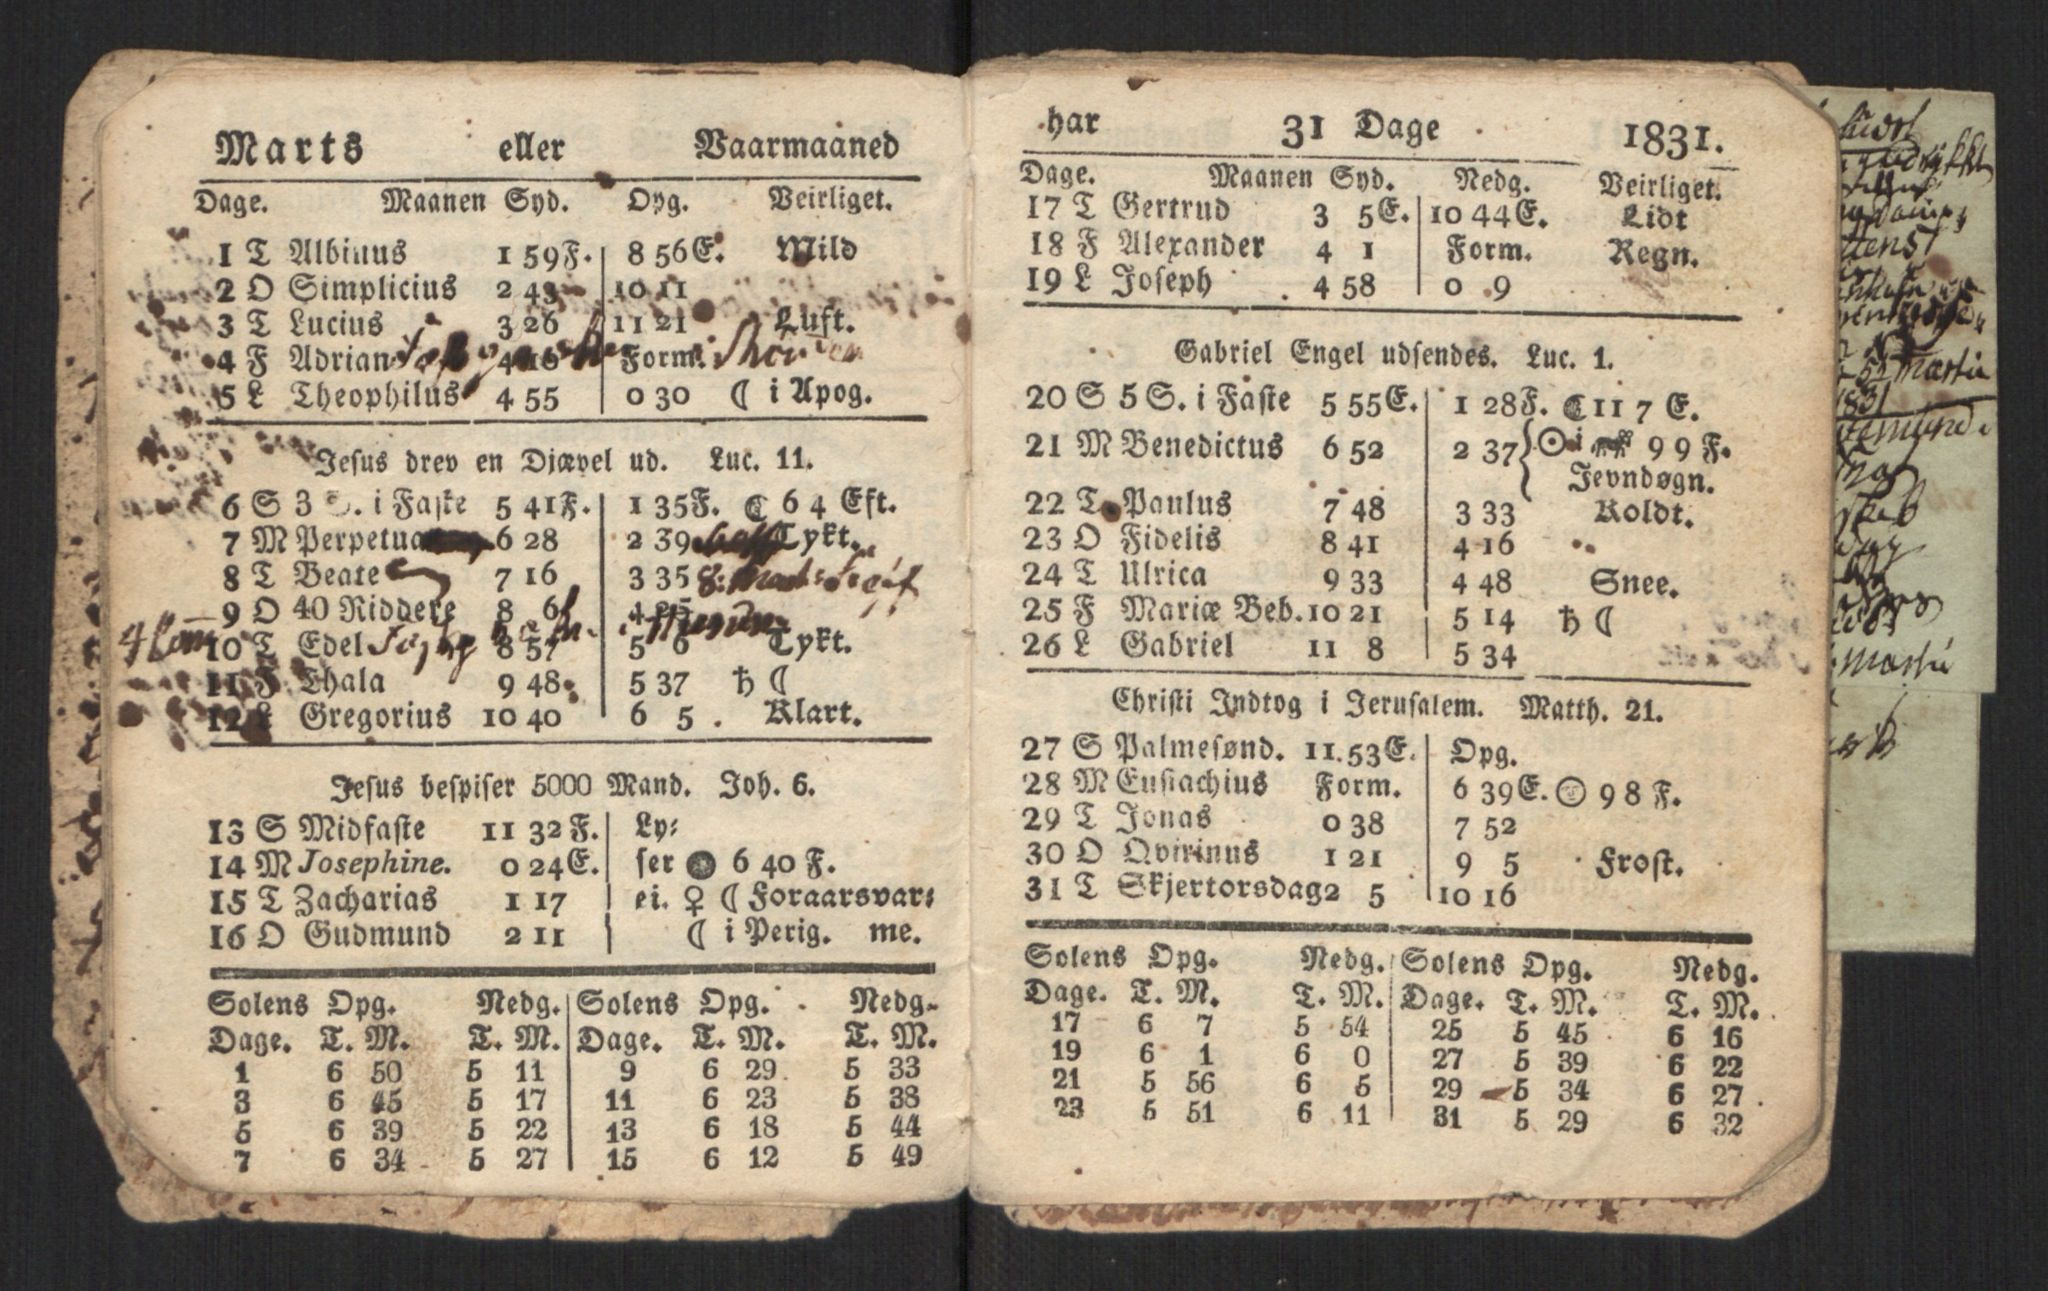 Marts eller Vaarmaaned
Dage. Maanen Syd. Opg. Veirliget.
1 T Albinus 1 59F. 8 56E. Mild
2 O Simplicius 2 43 10 11
3 T Lucius 3 26 11 21 Luft.
4 F Adrian 4 10 Form.
5 L Theophilus 4 55 0 30 ☾ i Apog.
Jesus drev en Djævel ud. Luc. 11.
6 S 3 S. i Faste 5 41F. 1 35F. ☾ 6 4 Eft.
7 M Perpetua 6 28 2 39 Tykt.
8 T Beate 7 16 3 35
9 O 40 Riddere 8 6 4
10 T Edel 8 57 5 6 Tykt.
11 F Thala 9 48 5 37 ♄ ☾
12 L Gregorius 10 40 6 5 Klart.
Jesus bespiser 5000 Mand. Joh. 6.
13 S Midfaste 11 32 F. Ly⸗
14 M Josephine. 0 24E. ser ● 6 40 F.
15 T Zacharias 1 17 ei. ♀ ☾ Foraarsvar⸗
16 O Gudmund 2 11 ☾ i Perig. me.
Solens Opg. Nedg. Solens Opg. Nedg.
Dage. T. M. T. M. Dage. T. M. T. M.
1 6 50 5 11 9 6 29 5 33
3 6 45 5 17 11 6 23 5 38
5 6 39 5 22 13 6 18 5 44
7 6 34 5 27 15 6 12 5 49
har 31 Dage 1831.
Dage. Maanen Syd. Nedg. Veirliget.
17 T Gertrud 3 5E. 10 44E. Lidt
18 F Alexander 4 1 Form. Regn.
19 L Joseph 4 58 0 9
Gabriel Engel udsendes. Luc. 1.
20 S 5 S. i Faste 5 55E. 1 28F. ☾ 11 7 E.
21 M Benedictus 6 52 2 37 { ☉ i ♈ 9 9 F.
Jevndøgn.
22 T Paulus 7 48 3 33 Koldt.
23 O Fidelis 8 41 4 16
24 T Ulrica 9 33 4 48 Snee.
25 F Mariæ Beb. 10 21 5 14 ♄ ☾
26 L Gabriel 11 8 5 34
Christi Indtog i Jerusalem. Matth. 21.
27 S Palmesønd. 11 53E. Opg.
28 M Eustachius Form. 6 39E. ○ 9 8 F.
29 T Jonas 0 38 7 52
30 O Qvirinus 1 21 9 5 Frost.
31 T Skjertorsdag 2 5 10 16
Solens Opg. Nedg. Solens Opg. Nedg.
Dage. T. M. T. M. Dage. T. M. T. M.
17 6 7 5 54 25 5 45 6 16
19 6 1 6 0 27 5 39 6 22
21 5 56 6 5 29 5 34 6 27
23 5 51 6 11 31 5 29 6 32
Martii
1831